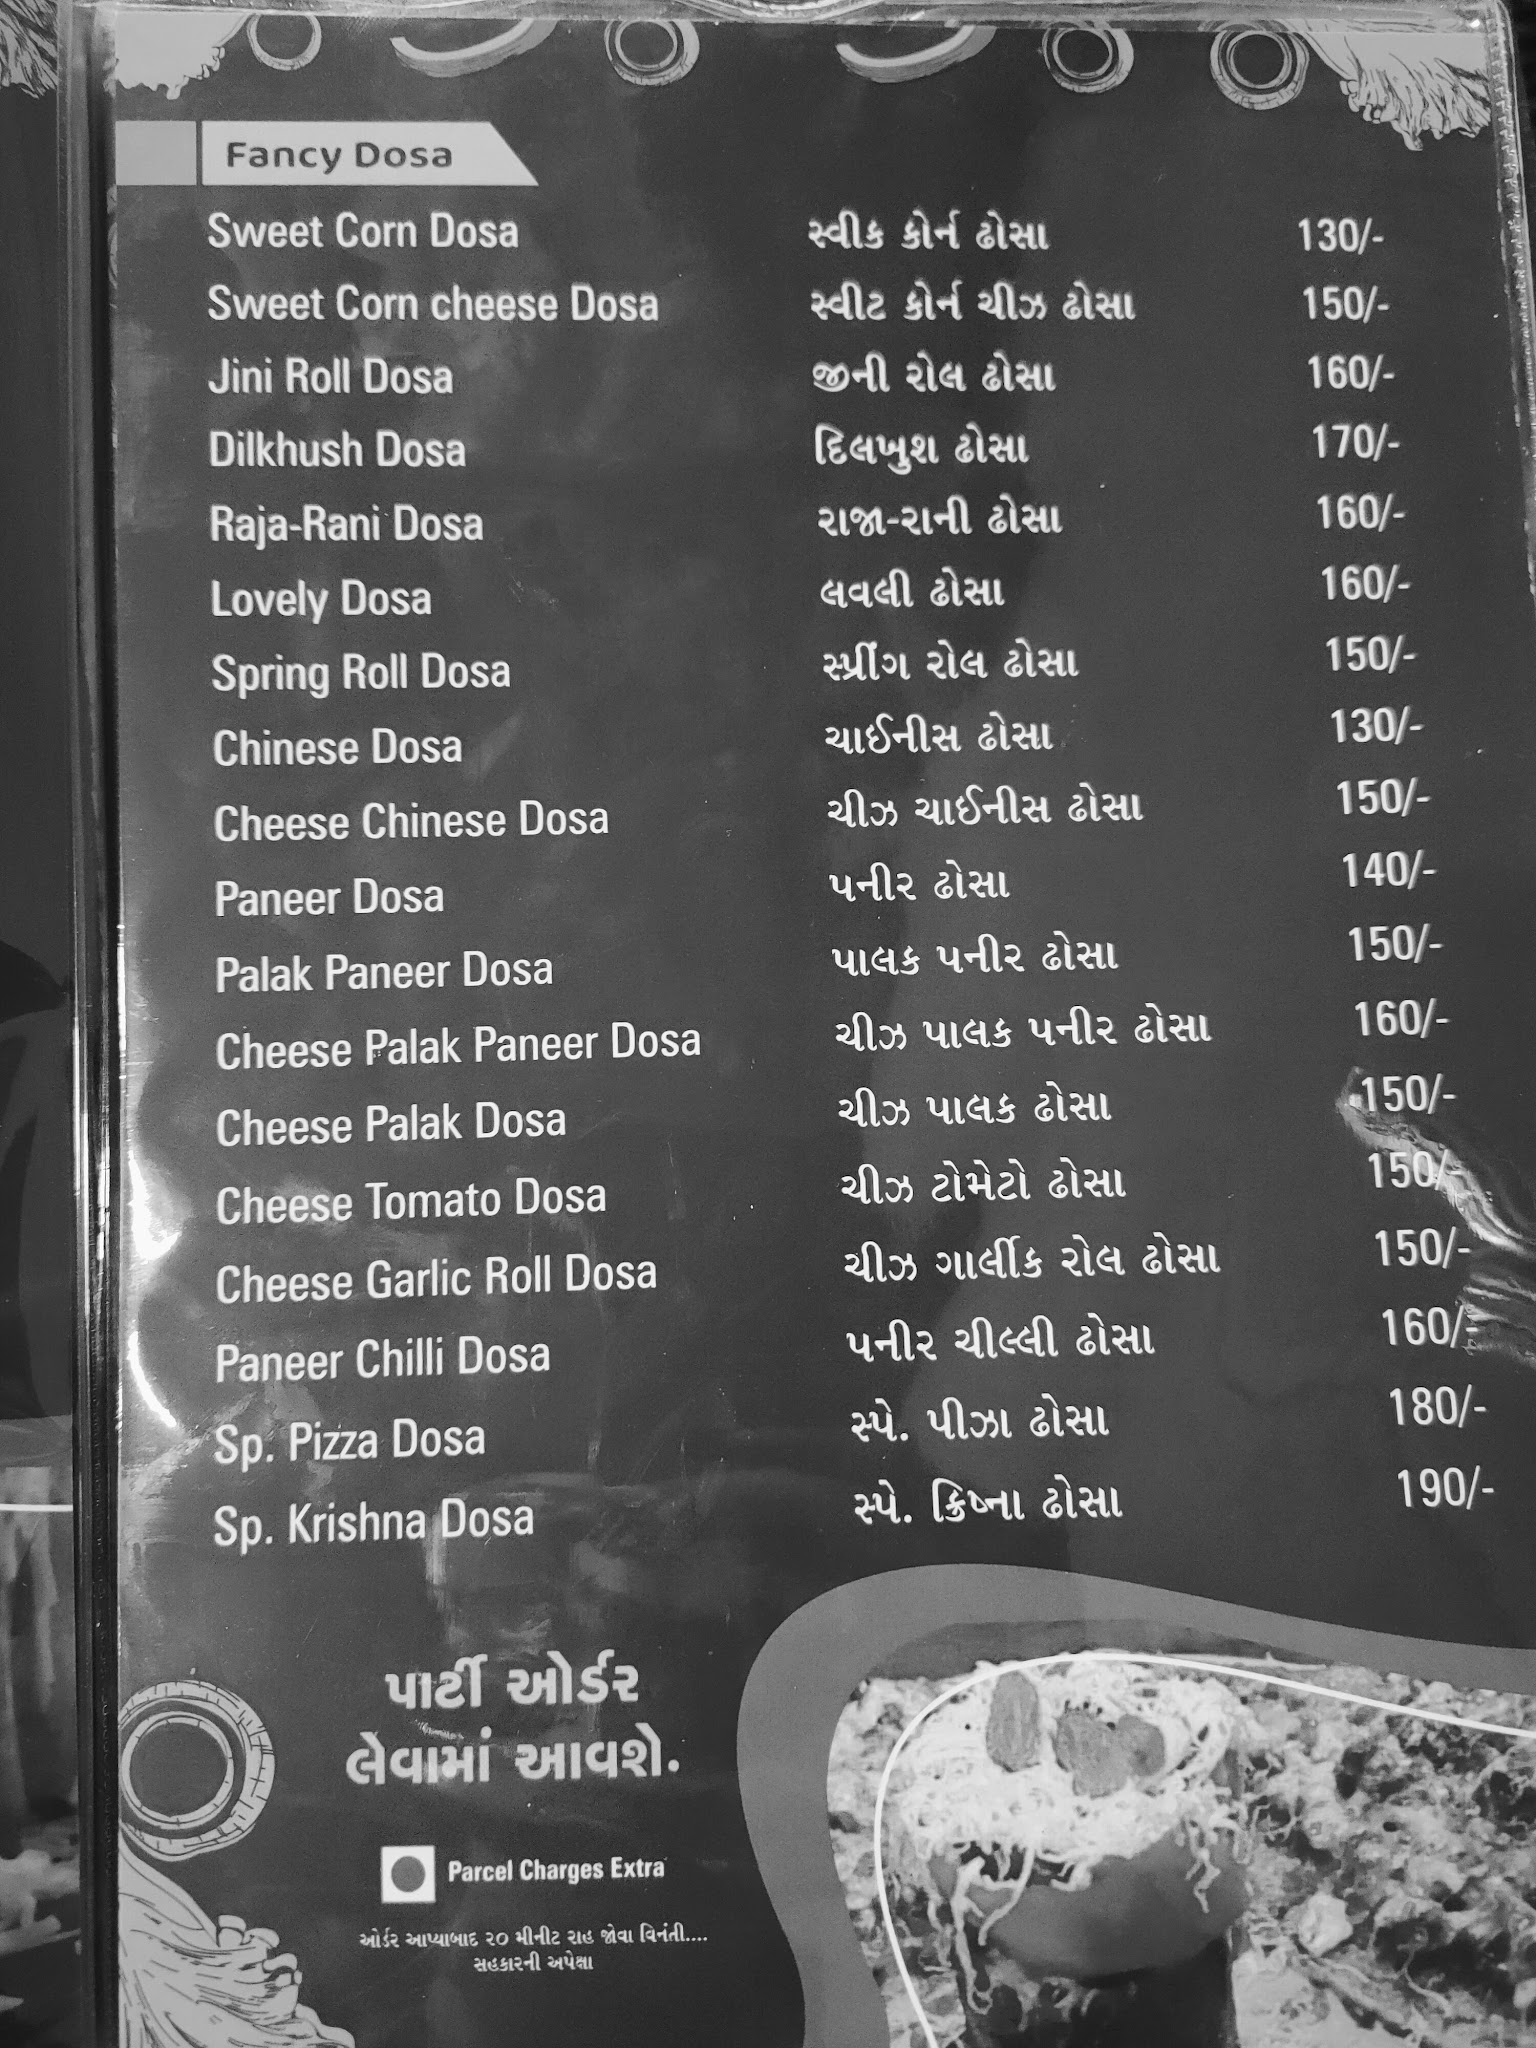 Fancy Dosa
Sweet Corn Dosa સ્વીક કોર્ન ઢોસા 130/-
Sweet Corn cheese Dosa સ્વીટ કોર્ન ચીઝ ઢોસા 150/-
Jini Roll Dosa જીની રોલ ઢોસા 160/-
Dilkhush Dosa દિલખુશ ઢોસા 170/-
Raja-Rani Dosa રાજા-રાની ઢોસા 160/-
Lovely Dosa લવલી ઢોસા 160/-
Spring Roll Dosa સ્પ્રીંગ રોલ ઢોસા 150/-
Chinese Dosa ચાઈનીસ ઢોસા 130/-
Cheese Chinese Dosa ચીઝ ચાઈનીસ ઢોસા 150/-
Paneer Dosa પનીર ઢોસા 140/-
Palak Paneer Dosa પાલક પનીર ઢોસા 150/-
Cheese Palak Paneer Dosa ચીઝ પાલક પનીર ઢોસા 160/-
Cheese Palak Dosa ચીઝ પાલક ઢોસા 150/-
Cheese Tomato Dosa ચીઝ ટોમેટો ઢોસા 150/-
Cheese Garlic Roll Dosa ચીઝ ગાર્લીક રોલ ઢોસા 150/-
Paneer Chilli Dosa પનીર ચીલ્લી ઢોસા 160/-
Sp. Pizza Dosa સ્પે. પીઝા ઢોસા 180/-
Sp. Krishna Dosa સ્પે. ક્રિષ્ના ઢોસા 190/-
પાર્ટી ઓર્ડર
લેવામાં આવશે.
Parcel Charges Extra
ઓર્ડર આપ્યાબાદ ૨૦ મીનીટ રાહ જોવા વિનંતી....
સહકારની અપેક્ષા